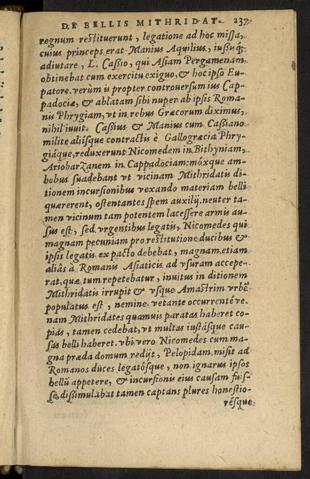 DE BELLIS MITHRIDAT. 237
regnum restituerunt, legatione ad hoc missa,
cuius princeps erat Manius Aquilius, iussiq́;
adiutare, L. Cassio, qui Asiam Pergamenam
obtinebat cum exercitu exiguo, & hoc ipso Eu-
patore. verùm is propter controuersum ius Cap-
padociæ, & ablatam sibi nuper ab ipsis Roma-
nis Phrygiam, vt in rebus Græcorum diximus,
nihil iuuit. Cassius & Manius cum Cassiano
milite aliisque contractis è Gallogræcia Phry-
giáque, reduxerunt Nicomedem in Bithyniam,
Ariobarzanem in Cappadociam: móxque am-
bobus suadebant vt vicinam Mithridatis di-
tionem incursionibus vexando materiam belli
quærerent, ostentantes spem auxilÿ. neuter ta-
men vicinum tam potentem lacessere armis au-
sus est, sed vrgentibus legatis, Nicomedes qui
magnam pecuniam pro restitutione ducibus &
ipsis legatis ex pacto debebat, magnam etiam
aliâs à Romanis Asiaticis ad vsuram accepe-
rat, quæ tum repetebatur, inuitus in ditionem
Mithridatis irrupit & vsque Amastrim vrbē
populatus est, nemine vetante occurrentéve.
nam Mithridates quamuis paratas haberet co-
pias, tamen cedebat, vt multas iustásque cau-
sas belli haberet. vbi verò Nicomedes cum ma-
gna præda domum redijt, Pelopidam misit ad
Romanos duces legatósque, non ignarus ipsos
bellū appetere, & incursionis eius causam fuis-
se, dissimulabat tamen captans plures honestio-
résque